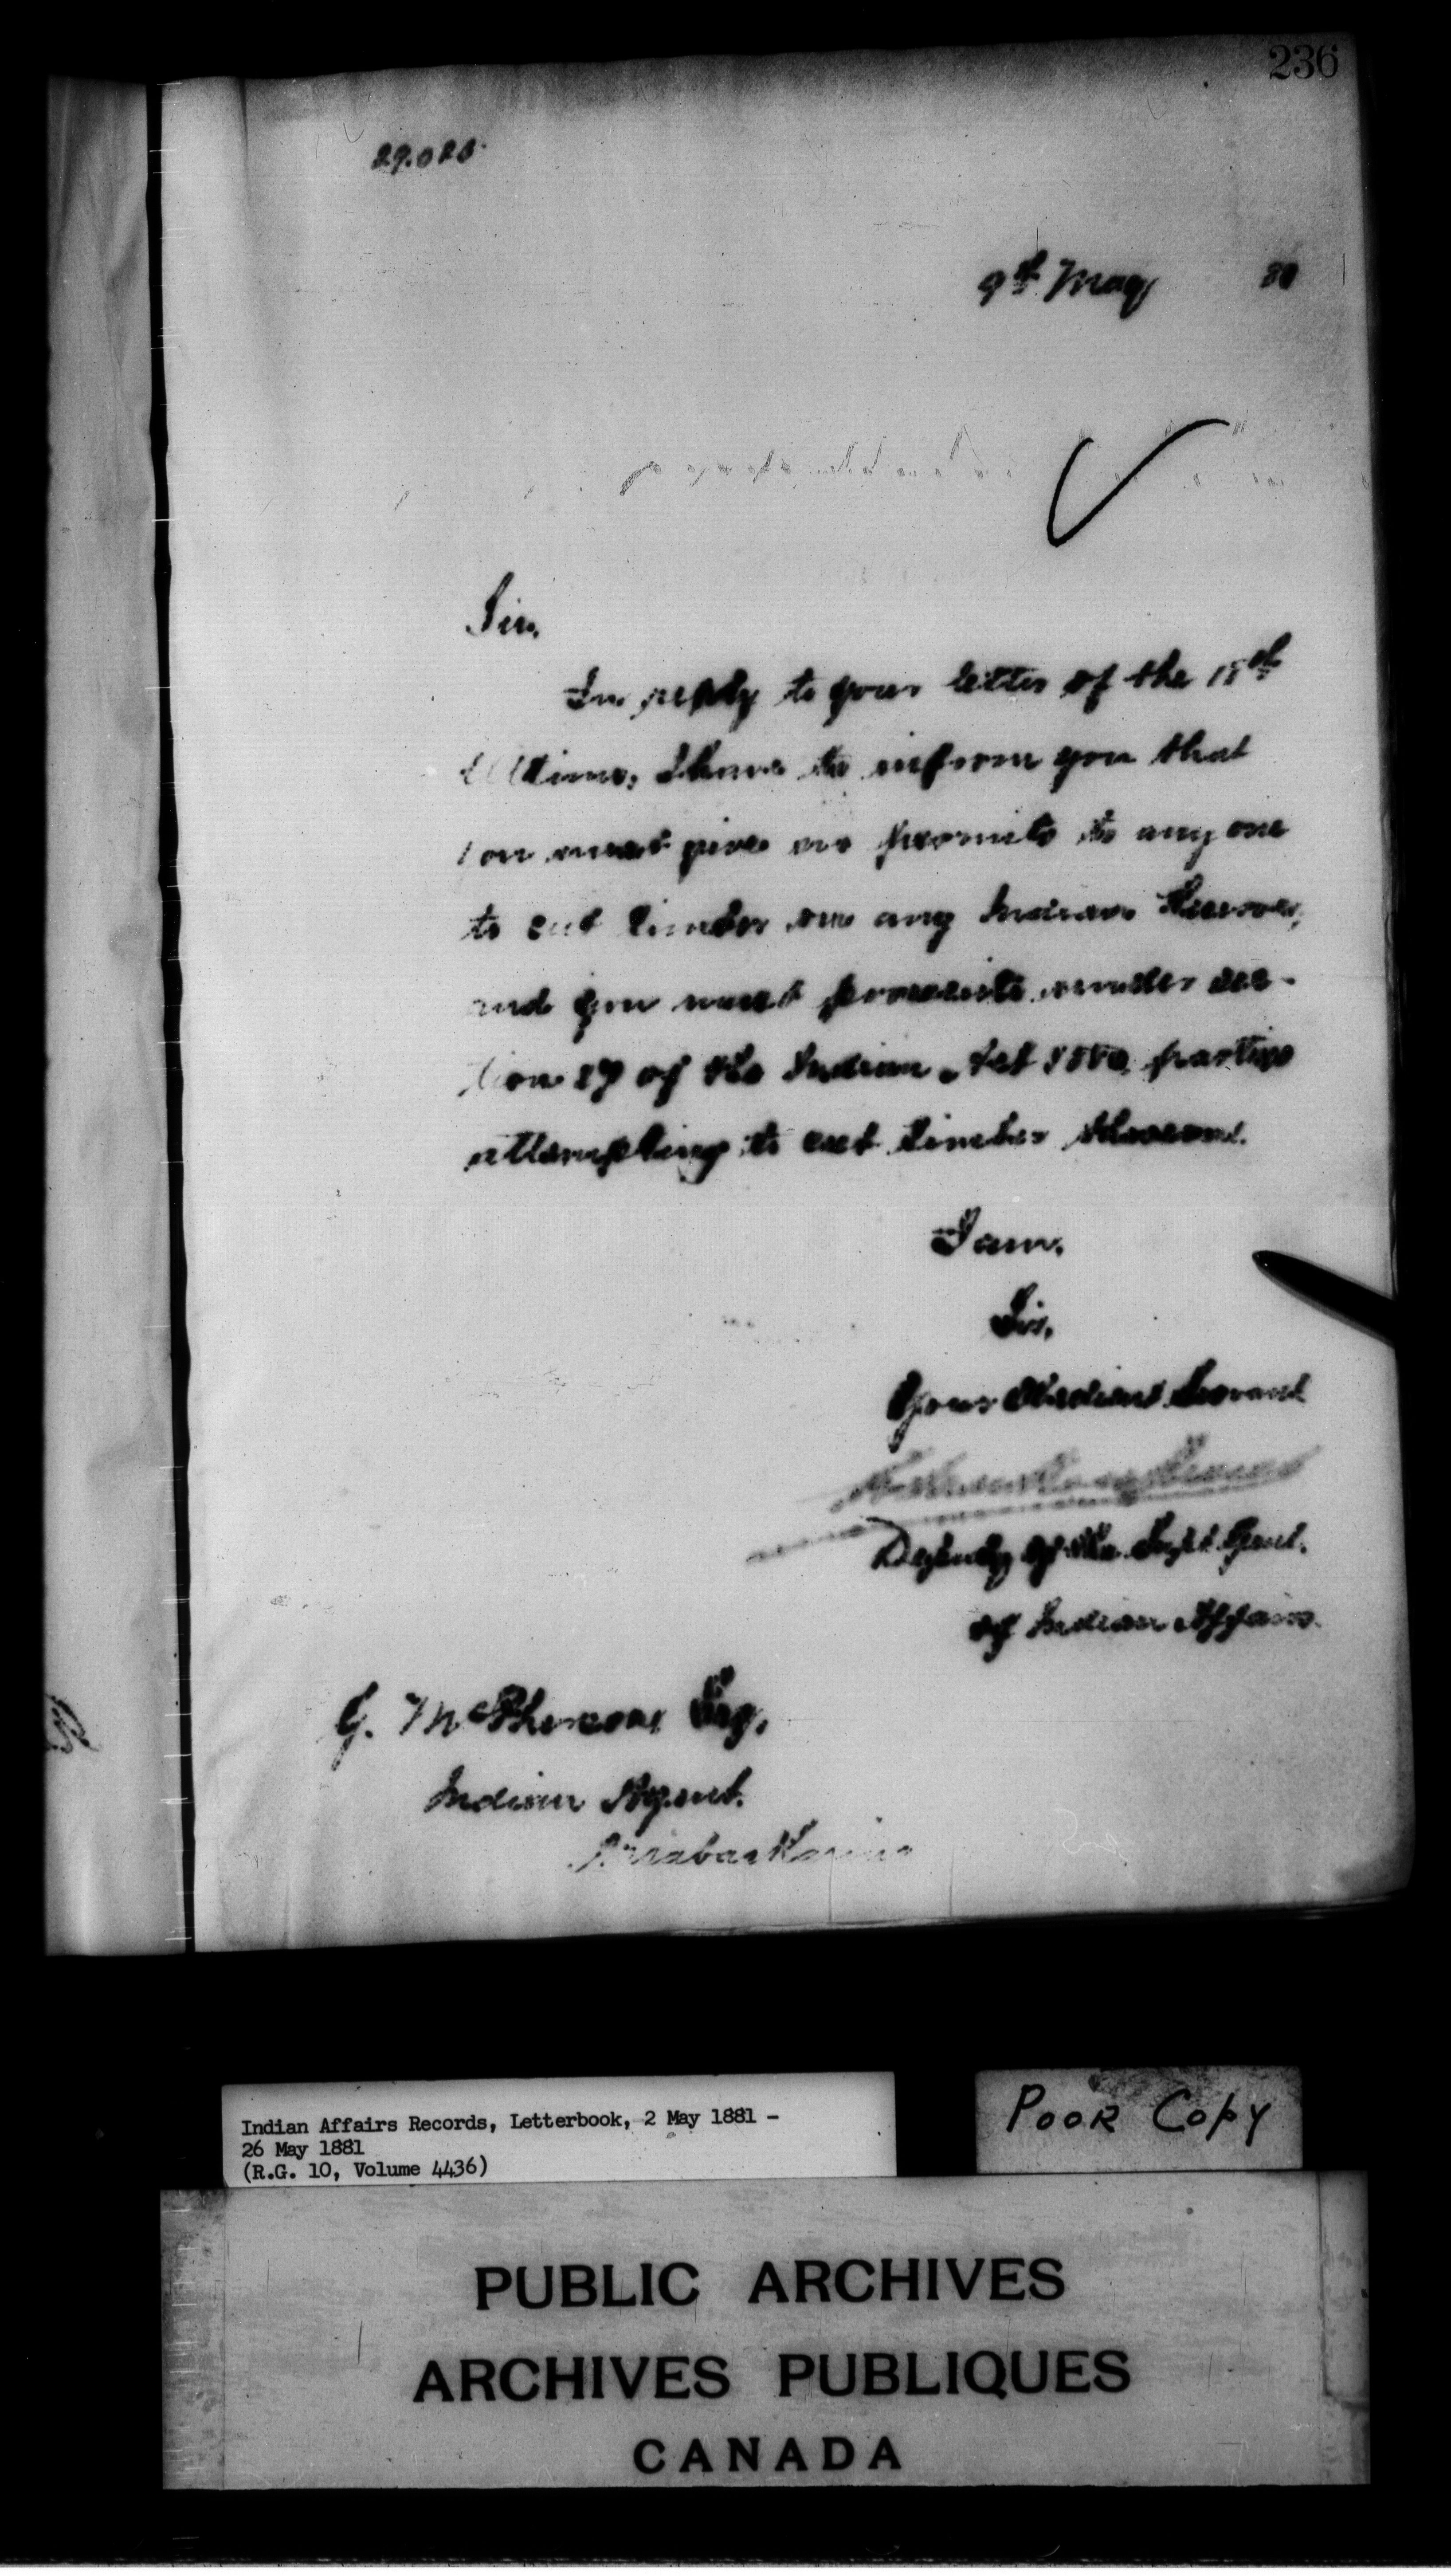 236
9th May
Sir,
In reply to your letter of the 18th
Ultimo, I have to inform you that
you must give no permits to any one
to cut timber on any Indian Reserve,
and you must prosecute under sec-
tion 27 of the Indian Act 1880, parties
attempting to cut timber thereon.
I am,
Sir,
Your Obedient Servant
Deputy of the Supt. Genl.
of Indian Affairs.
G. McPherson, Esq,
Indian Agent.
Indian Affairs Records, Letterbook, 2 May 1881 -
26 May 1881
(R.G. 10, Volume 4436)
POOR COPY
PUBLIC ARCHIVES
ARCHIVES PUBLIQUES
CANADA